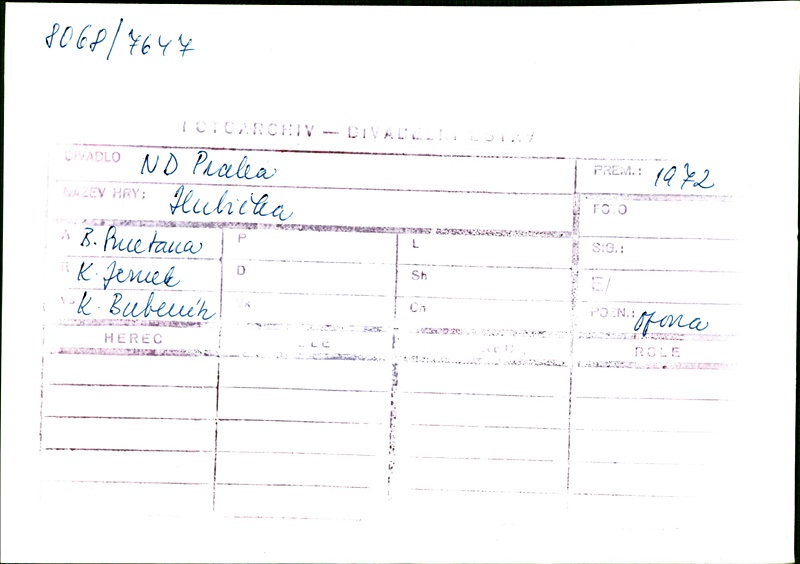 8068/7647
FOTOARCHIV — DIVADELNÍ ÚSTAV
DIVADLO ND Praha PREM.: 1972
NÁZEV HRY: Hubička FOTO
A B. Smetana P L SIG.:
R K. Jernek D Sh E/
K. Bubeník Ch POZN.: opona
HEREC ROLE ROLE